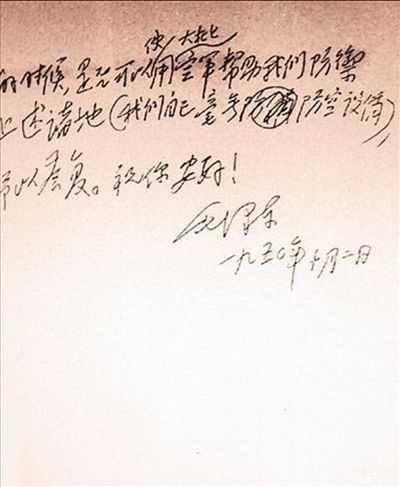 使大批
的时候，是否可以用空军帮助我们防禦
上述诸地（我们自己毫无防 防空设备），
予以答复。祝你安好！
毛泽东
一九五〇年十月二日